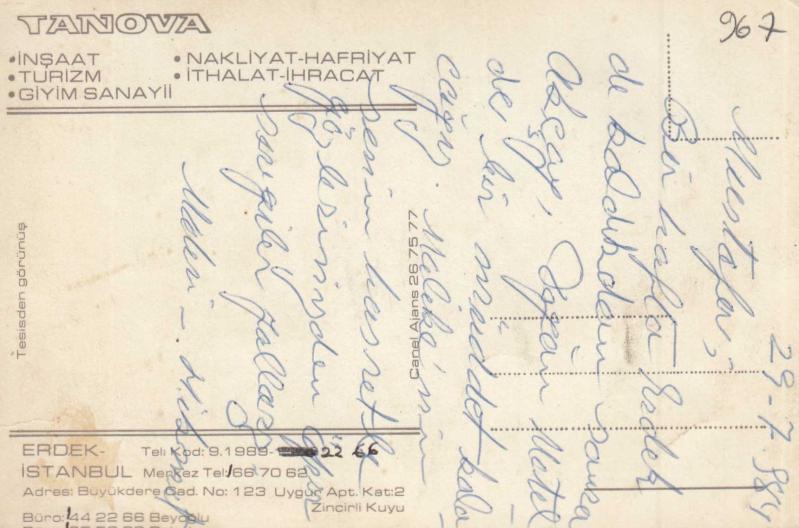 TANOVA
967
•İNŞAAT
•TURİZM
•GİYİM SANAYİİ
• NAKLİYAT-HAFRİYAT
• İTHALAT-İHRACAT
29-7-984
Mustafa;
Bir hafta Erdek
de kaldıkdan sonra
Akçay, Motel
de bir müddet kala-
cağız.
senin hasretle
gözlerinizden öper
sevgiler yollarız
Tesisden görünüş
Canel Ajans 26 75 77
ERDEK- Tel: Kod: 9.1989- 22 66
İSTANBUL Merkez Tel: 166 70 62
Adres: Büyükdere Cad. No: 123 Uygur Apt. Kat:2
Zincirli Kuyu
Büro: 144 22 66 Beyoğlu